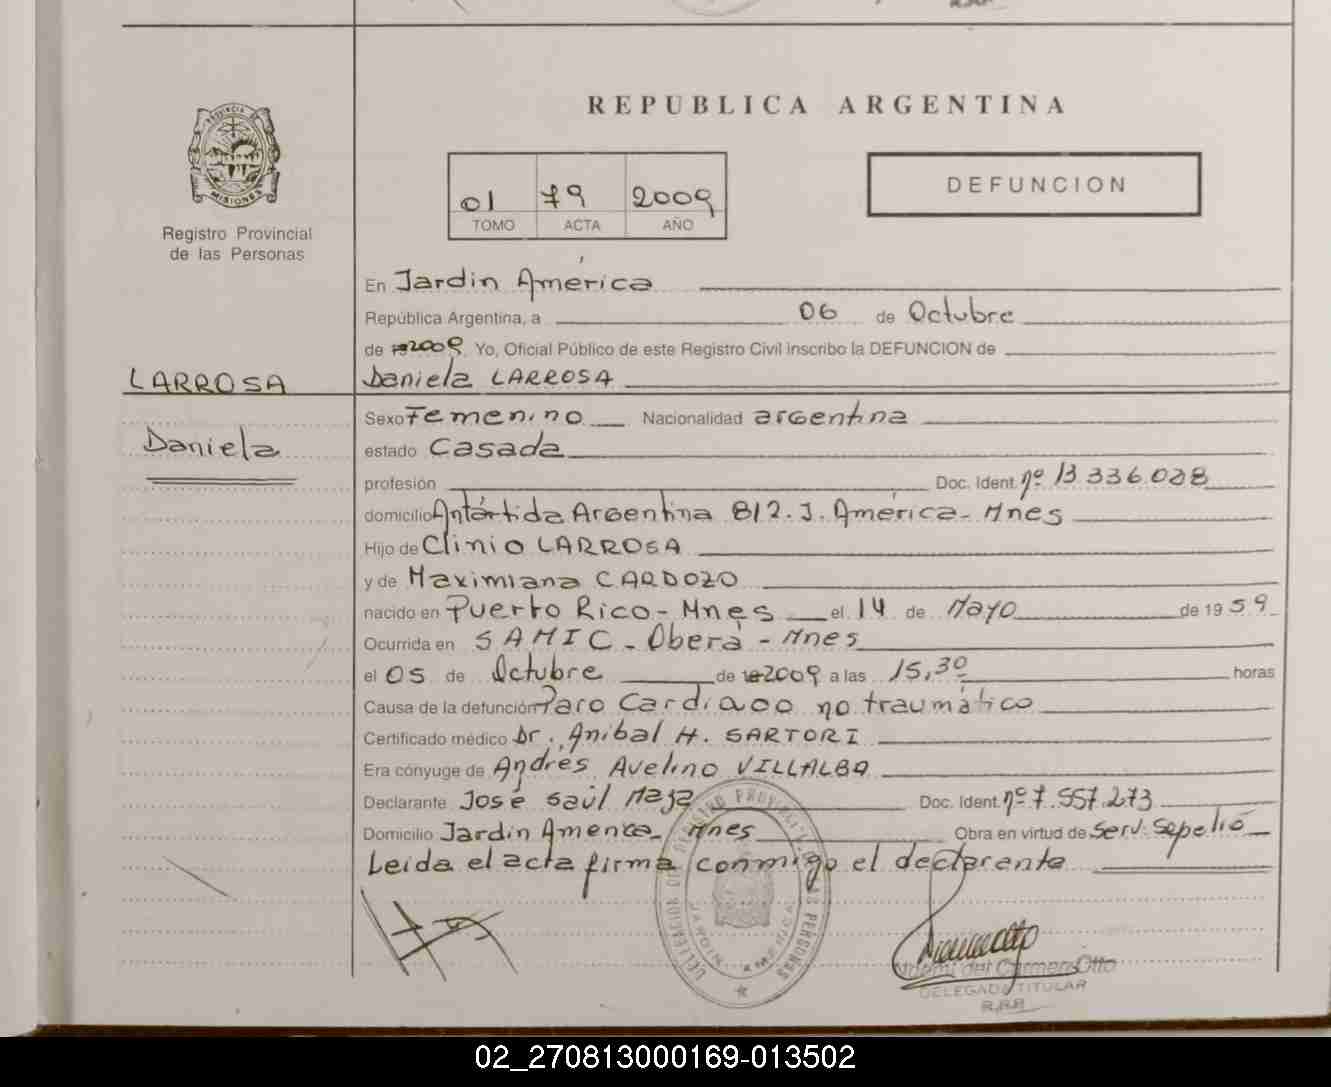 REPUBLICA ARGENTINA
PROVINCIA DE MISIONES
Registro Provincial
de las Personas
01 79 2009
TOMO ACTA AÑO
DEFUNCION
En Jardin América
República Argentina, a 06 de Octubre
de 2009 Yo, Oficial Público de este Registro Civil inscribo la DEFUNCION de
LARROSA
Daniela LARROSA
Daniela
Sexo Femenino Nacionalidad argentina
estado Casada
profesión Doc. Ident. nº 13.336.028
domicilio Antártida Argentina 812. J. América - Mnes
Hijo de Clinio LARROSA
y de Maximiana CARDOZO
nacido en Puerto Rico - Mnes el 14 de Mayo de 1959
Ocurrida en SAMIC - Oberá - Mnes
el 05 de Octubre de 2009 a las 15,30 horas
Causa de la defunción Paro Cardiaco no traumático
Certificado médico Dr. Aníbal H. SARTORI
Era cónyuge de Andrés Avelino VILLALBA
Declarante José Saúl Maza Doc. Ident. nº 7.557.273
Domicilio Jardín America - Mnes Obra en virtud de Serv. Sepelio
Leida el acta firma conmigo el declarante
DELEGACION DEL REGISTRO PROVINCIAL DE LAS PERSONAS
JARDIN AMERICA
Noemi del Carmen Otto
DELEGADA TITULAR
R.P.P.
02_270813000169-013502